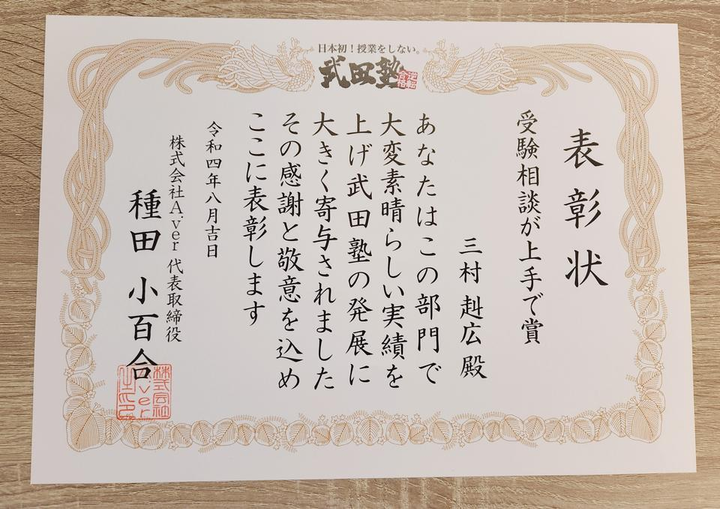 日本初！授業をしない。
武田塾
逆転
合格
表彰状
受験相談が上手で賞
三村赳広殿
あなたはこの部門で
大変素晴らしい実績を
上げ武田塾の発展に
大きく寄与されました
その感謝と敬意を込め
ここに表彰します
令和四年八月吉日
株式会社A.ver 代表取締役
種田 小百合
株式会社
A.ver
之印